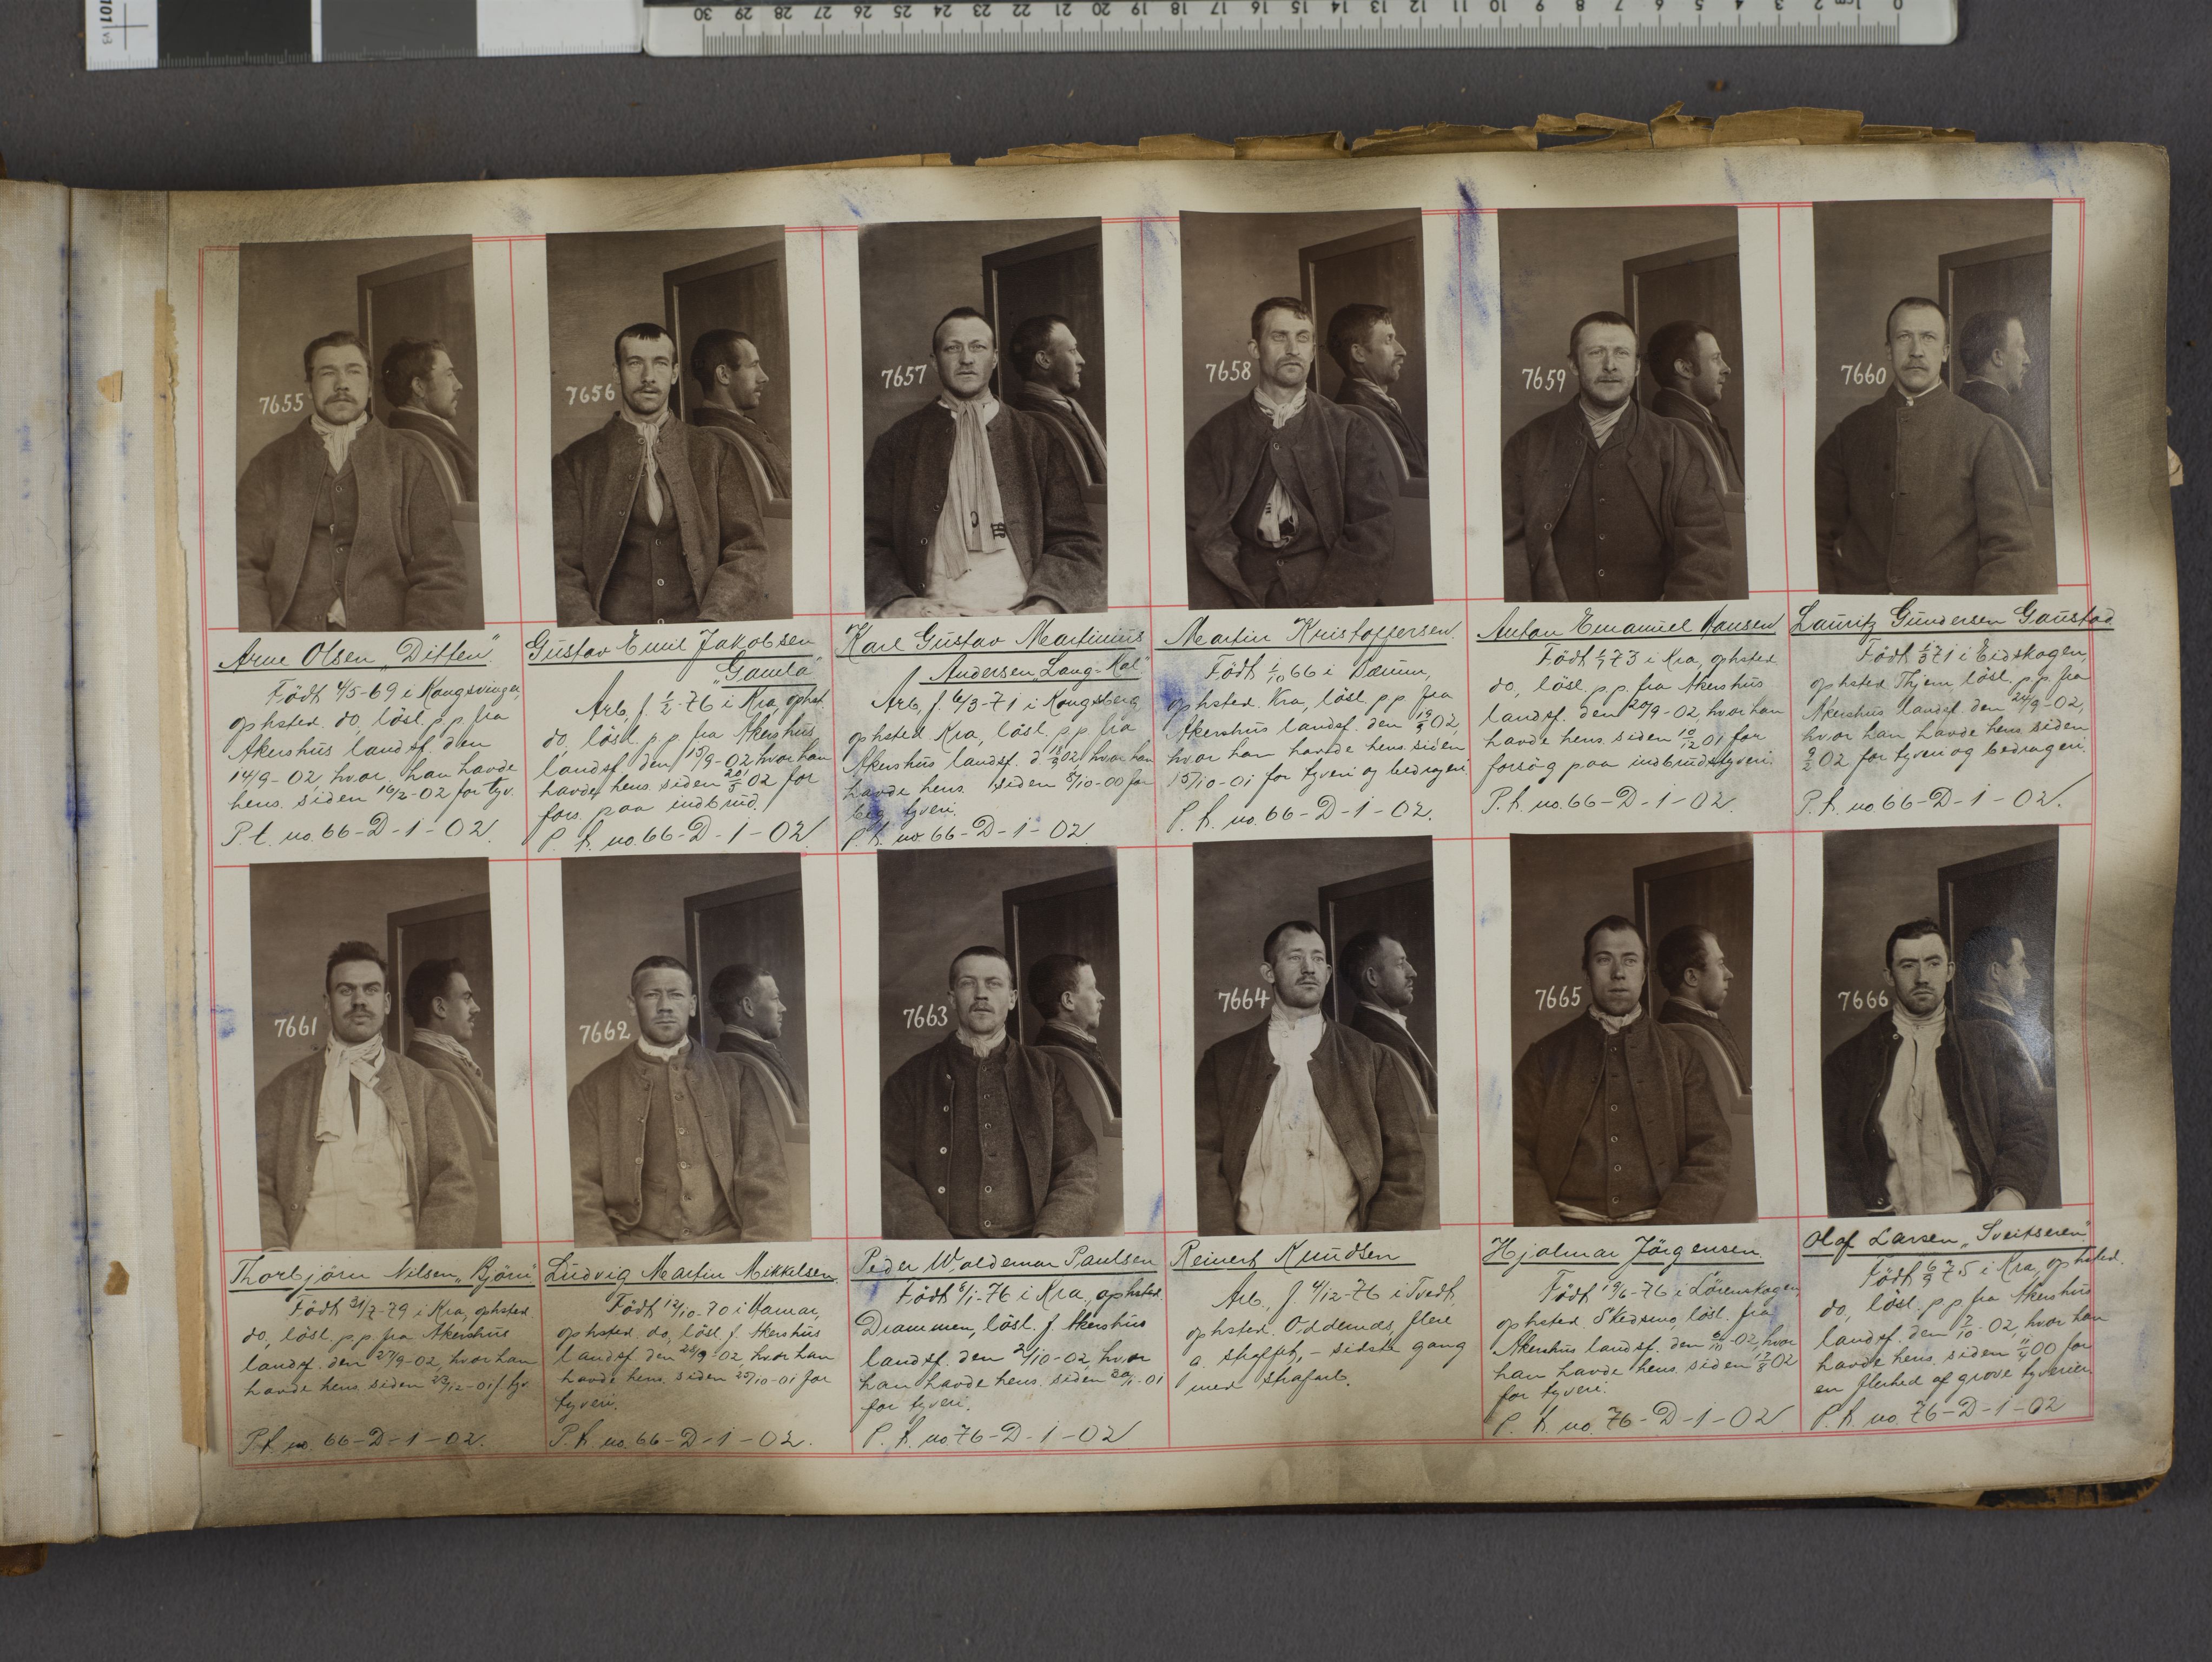 101 v3
30 29 28 27 26 25 24 23 22 21 20 19 18 17 16 15 14 13 12 11 10 9 8 7 6 5 4 3 2 1 cm 0
7655
Arne Olsen „Ditten"
Födt 4/5-69 i Kongsvinger,
ophsted. do, lösl. p.p. fra
Akershus landsf. den
14/9-02, hvor han havde
hens. siden 16/2-02 for tyv.
P.t. no. 66-D-1-02.
7656
Gustav Emil Jakobsen
„Gamla"
Arb, f. 1/2-76 i Kra, ophst.
do, lösl. p.p. fra Akershus
landsf. den 15/9-02, hvor han
havde hens. siden 02 for
fors. paa indbrud.
P.t. no. 66-D-1-02.
7657
Karl Gustav Martinius
Andersen „Lang-Kal."
Arb, f. 6/3-71 i Kongsberg,
ophsted. Kra, lösl. p.p. fra
Akershus landsf. d. 18/9 02, hvor han
havde hens. siden 5/10-00 for
beg. tyveri.
P.t. no. 66-D-1-02
7658
Martin Kristoffersen.
Födt 1/10 66 i Bærum,
ophsted. Kra, lösl. p.p. fra
Akershus landsf. den 19/9 02,
hvor han havde hens. siden
15/10-01 for tyveri og bedrageri
P.t. no. 66-D-1-02.
7659
Anton Emanuel Hansen
Födt 1/7 73 i Kra, ophsted.
do, lösl. p.p. fra Akershus
landsf. den 20/9-02, hvor han
havde hens. siden 10/12 01 for
forsög paa indbrudstyveri.
P.t. no. 66-D-1-02.
7660
Lauritz Gundersen Gaustad
Födt 1/3 71 i Eidskogen,
ophsted. Thjem lösl. p.p. fra
Akershus landsf. den 24/9-02,
hvor han havde hens. siden
9/2 02 for tyveri og bedrageri.
P.t. no 66-D-1-02.
7661
Thorbjörn Nilsen „Björn"
Födt 31/7-79 i Kra, ophsted.
do, lösl. p.p. fra Akershus
landsf. den 27/9-02, hvor han
havde hens. siden 23/12-01 f. tyv.
P.t. no. 66-D-1-02.
7662
Ludvig Martin Mikkelsen.
Födt 12/10-70 i Hamar,
ophsted. do, lösl. f. Akershus
landsf. den 28/9-02, hvor han
havde hens. siden 25/10-01 for
tyveri.
P.t. no. 66-D-1-02.
7663
Peder Waldemar Paulsen
Födt 8/1-76 i Kra, ophsted.
Drammen, lösl. f. Akershus
landsf. den 2/10-02, hvor
han havde hens. siden 01
for tyveri.
P.t. no. 76-D-1-02
7664
Reinert Knudsen
Arb., f. 4/12-76 i Tvedt,
ophsted. Oddernes, flere
g. straffet, - sidste gang
med strafarb.
7665
Hjalmar Jörgensen.
Födt 19/6-76 i Lörenskogen,
ophsted. Skedsmo, lösl. fra
Akershus landsf. den 6/10-02, hvor
han havde hens. siden 17/8 02
for tyveri.
P.t. no. 76-D-1-02
7666
Olaf Larsen „Sveitseren"
Födt 6/9 75 i Kra, ophsted.
do, lösl. p.p. fra Akershus
landsf. den 7/10-02, hvor han
havde hens. siden 11/4 00 for
en flerhed af grove tyverier.
P.t. no. 76-D-1-02